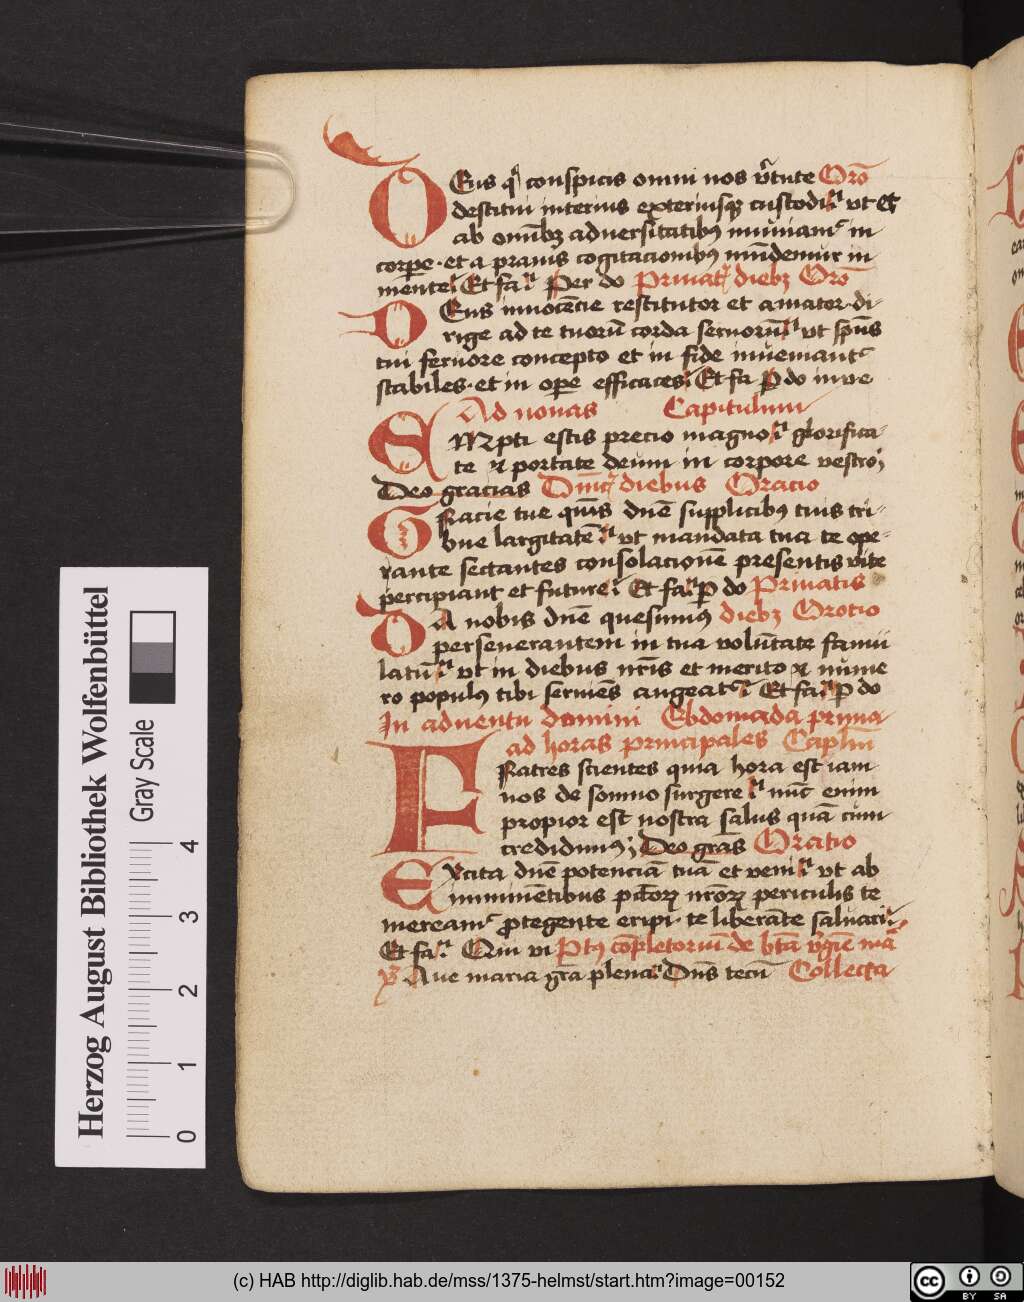 DEus qͥ conspicis omni nos v̾tute Oro̅
destitui interius exteriusqꝫ custodi ut et
ab omībꝫ aduersitatibꝰ muniamʳ in
corpe · et a prauis cogitacionibꝰ mūdemur in
mente Et fa Per do Priuatꝭ diebꝫ Oro̅
DEus innocēcie restitutor et amator di-
rige ad te tuoꝝ corda seruoꝝ ut spūs
tui feruore concepto et in fide inueniantʳ
stabiles · et in ope efficaces Et fa P do in ve
Ad nonas Capitulum
EMpti estis precio magno glorifica-
te et portate deum in corpore vestro
Deo gracias Dnīcꝭ diebus Oracio
GRacie tue quīs dne̅ supplicibꝰ tuis tri-
bue largitatē ut mandata tua te ope-
rante sectantes consolacionē presentis vite
percipiant et future Et fa P do Priuatis
DA nobis dne̅ quesumꝰ diebꝫ Orotio
perseuerantem in tua volūtate famu
latū ut in diebus nr̄is et merito et nume
ro populꝰ tibi seruiēs augeatʳ Et fa P do
In aduentu domini Ebdomada prima
ad horas principales Caplm̄
FRatres scientes quia hora est iam
nos de somno surgere nūc enim
propior est nostra salus quā cum
credidimꝰ Deo gra̅s Oratio
EXcita dne̅ potenciā tuā et veni ut ab
imminētibus pctōꝝ nr̄oꝝ periculis te
mereamʳ ꝓtegente eripi · te liberāte saluari
Et fa Qui vi Ptꝰ cōpletoriū de bt̄a v̾gīe mā
℣ Aue maria gr̄a plena Dns̄ tecū Collecta
Herzog August Bibliothek Wolfenbüttel
Gray Scale
0 1 2 3 4
(c) HAB http://diglib.hab.de/mss/1375-helmst/start.htm?image=00152
cc BY SA